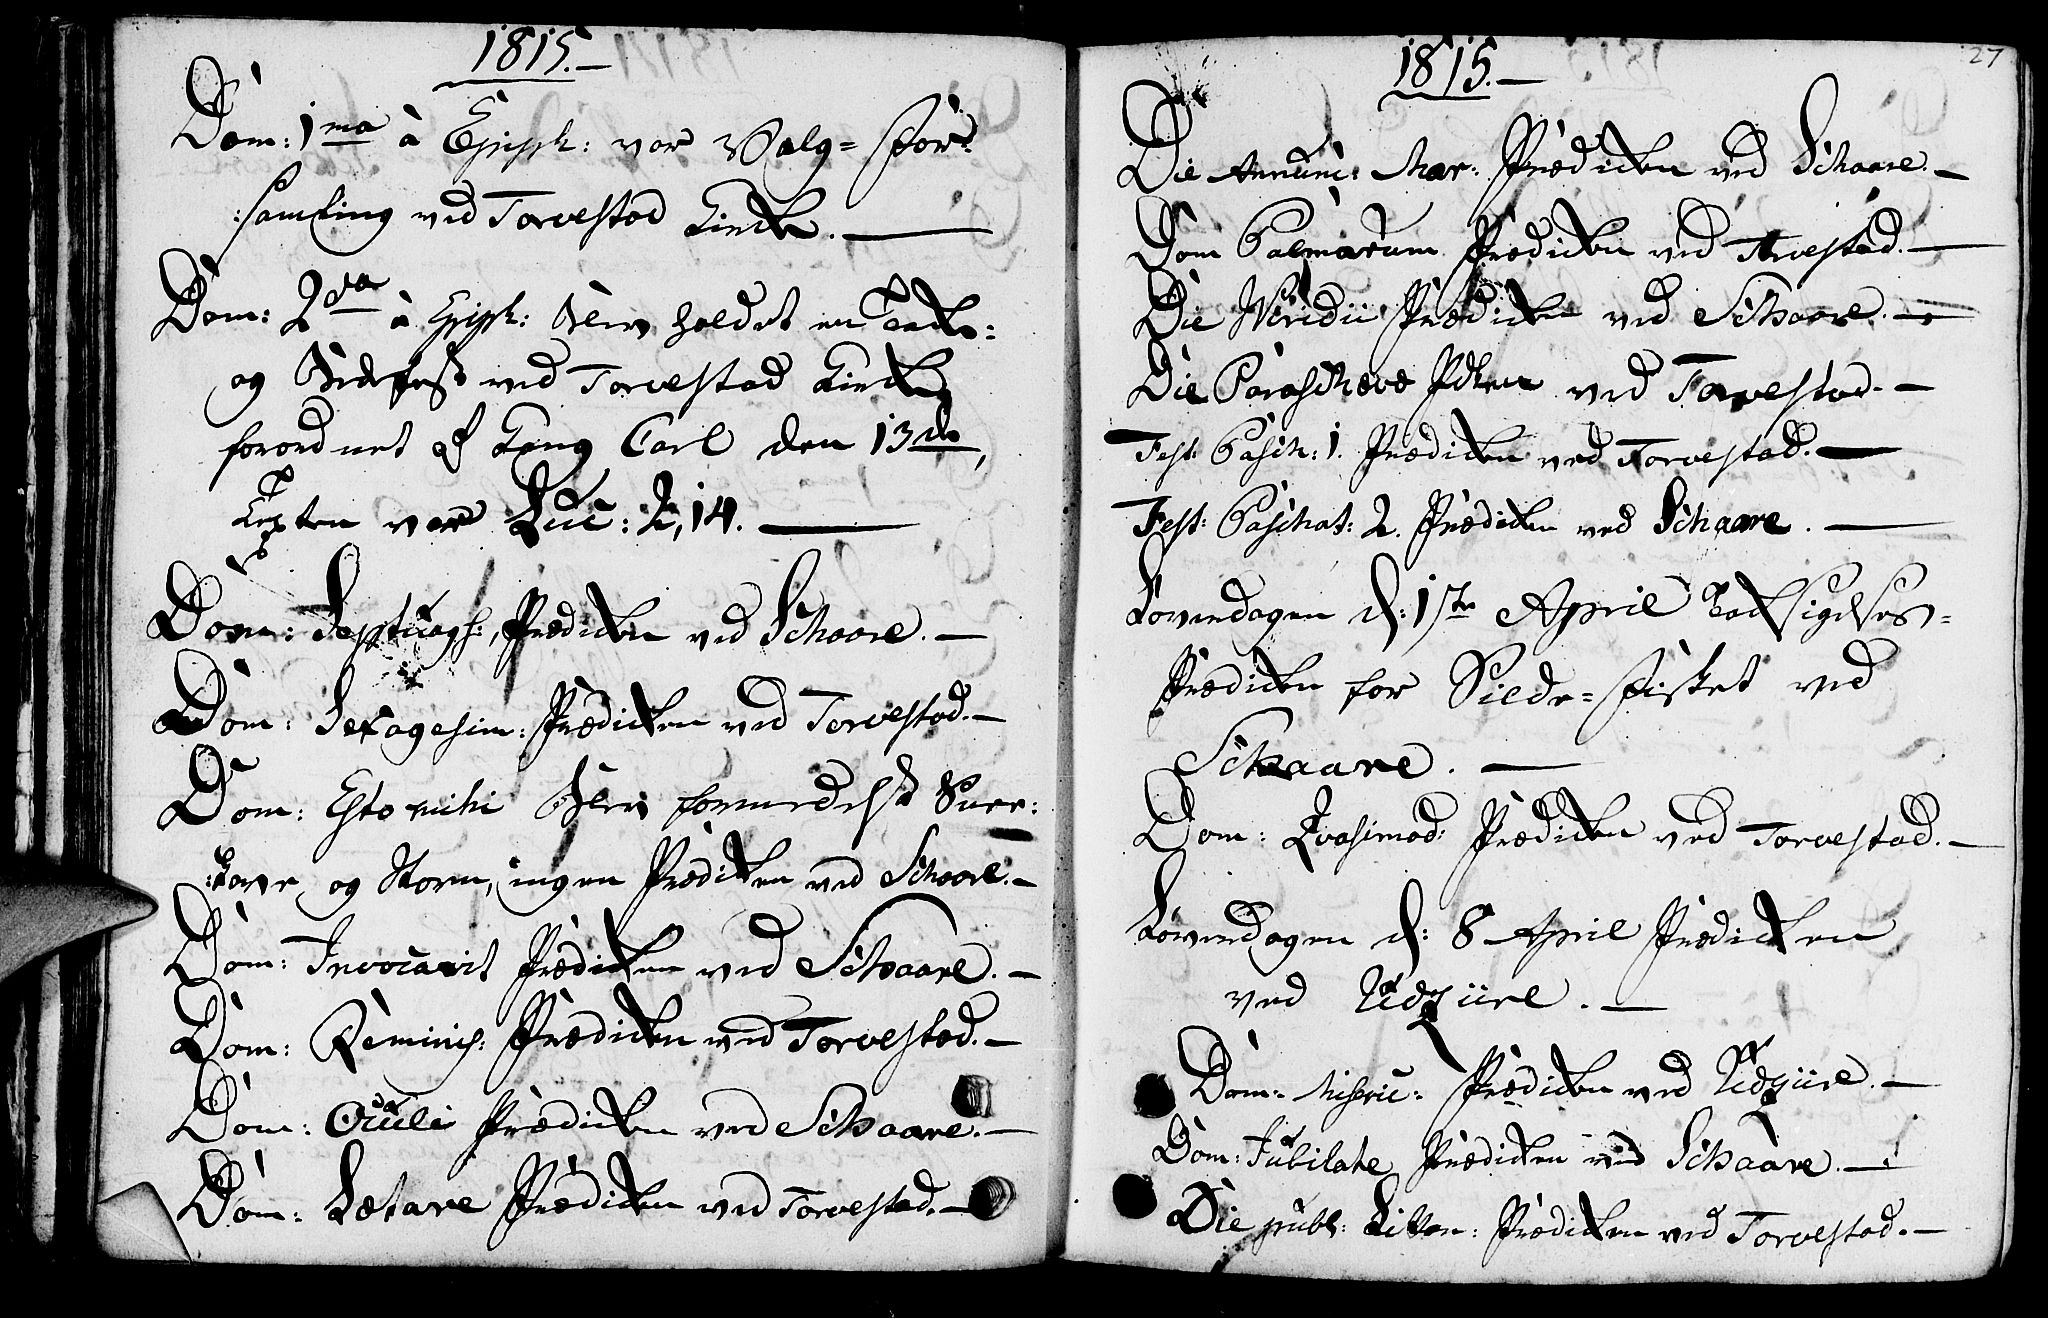 1815.—
Dom: 1ma à Epiph: var Valg= For=
:samling ved Torvestad Kircke.—
Dom: 2da à Epiph: blev holdet en Tacke=
og Bedefest ved Torvestad Kircke,
forordnet af Kong Carl den 13de,
Texten var Luc: 2, 14.—
Dom: Septuags:, Prædicken ved Schaare.—
Dom: Sexagesim: Prædicken ved Torvestad.—
Dom: Esto mihi blev formedelst
og Storm, ingen Prædicken ved Schaare.—
Dom: Invocavit Prædicken ved Schaare.—
Dom: Reminis: Prædicken ved Torvestad.—
Dom: Oculi Prædicken ved Schaare.—
Dom: Lætare Prædicken ved Torvestad.—
27
1815.—
Die Annunc: Mar: Prædicken ved Schaare.—
Dom Palmarum Prædicken ved Torvestad.—
Die Viridii Prædicken ved Schaare.—
Die Paraschæve ved Torvestad.—
Fest: Pasch: 1. Prædicken ved Torvestad.—
Fest: Paschat: 2. Prædicken ved Schaare.—
Löverdagen d: 1ste April Tacksigelses=
Prædicken for Silde=Fisket ved
Schaare.—
Dom: Qvasimod: Prædicken ved Torvestad.—
Löverdagen d: 8 April Prædicken
ved Udzüre.—
Dom: Miseric: Prædicken ved Udzüre.—
Dom: Jubilate Prædicken ved Schaare.—
Die publ: Litten: Prædicken ved Torvestad.—